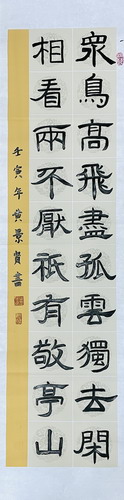 眾鳥高飛盡孤雲獨去閑
相看兩不厭祗有敬亭山
壬寅年黃景賢書